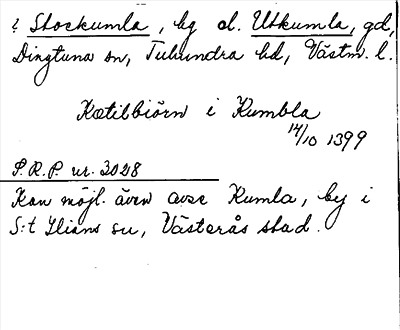 ? Stockumla, by el. Utkumla, gd,
Dingtuna sn, Tuhundra hd, Västm. l.
Kætilbiörn i Kumbla
14/10 1399
S.R.P. nr. 3028
Kan möjl. även avse Kumla, by i
S:t Ilians sn, Västerås stad.